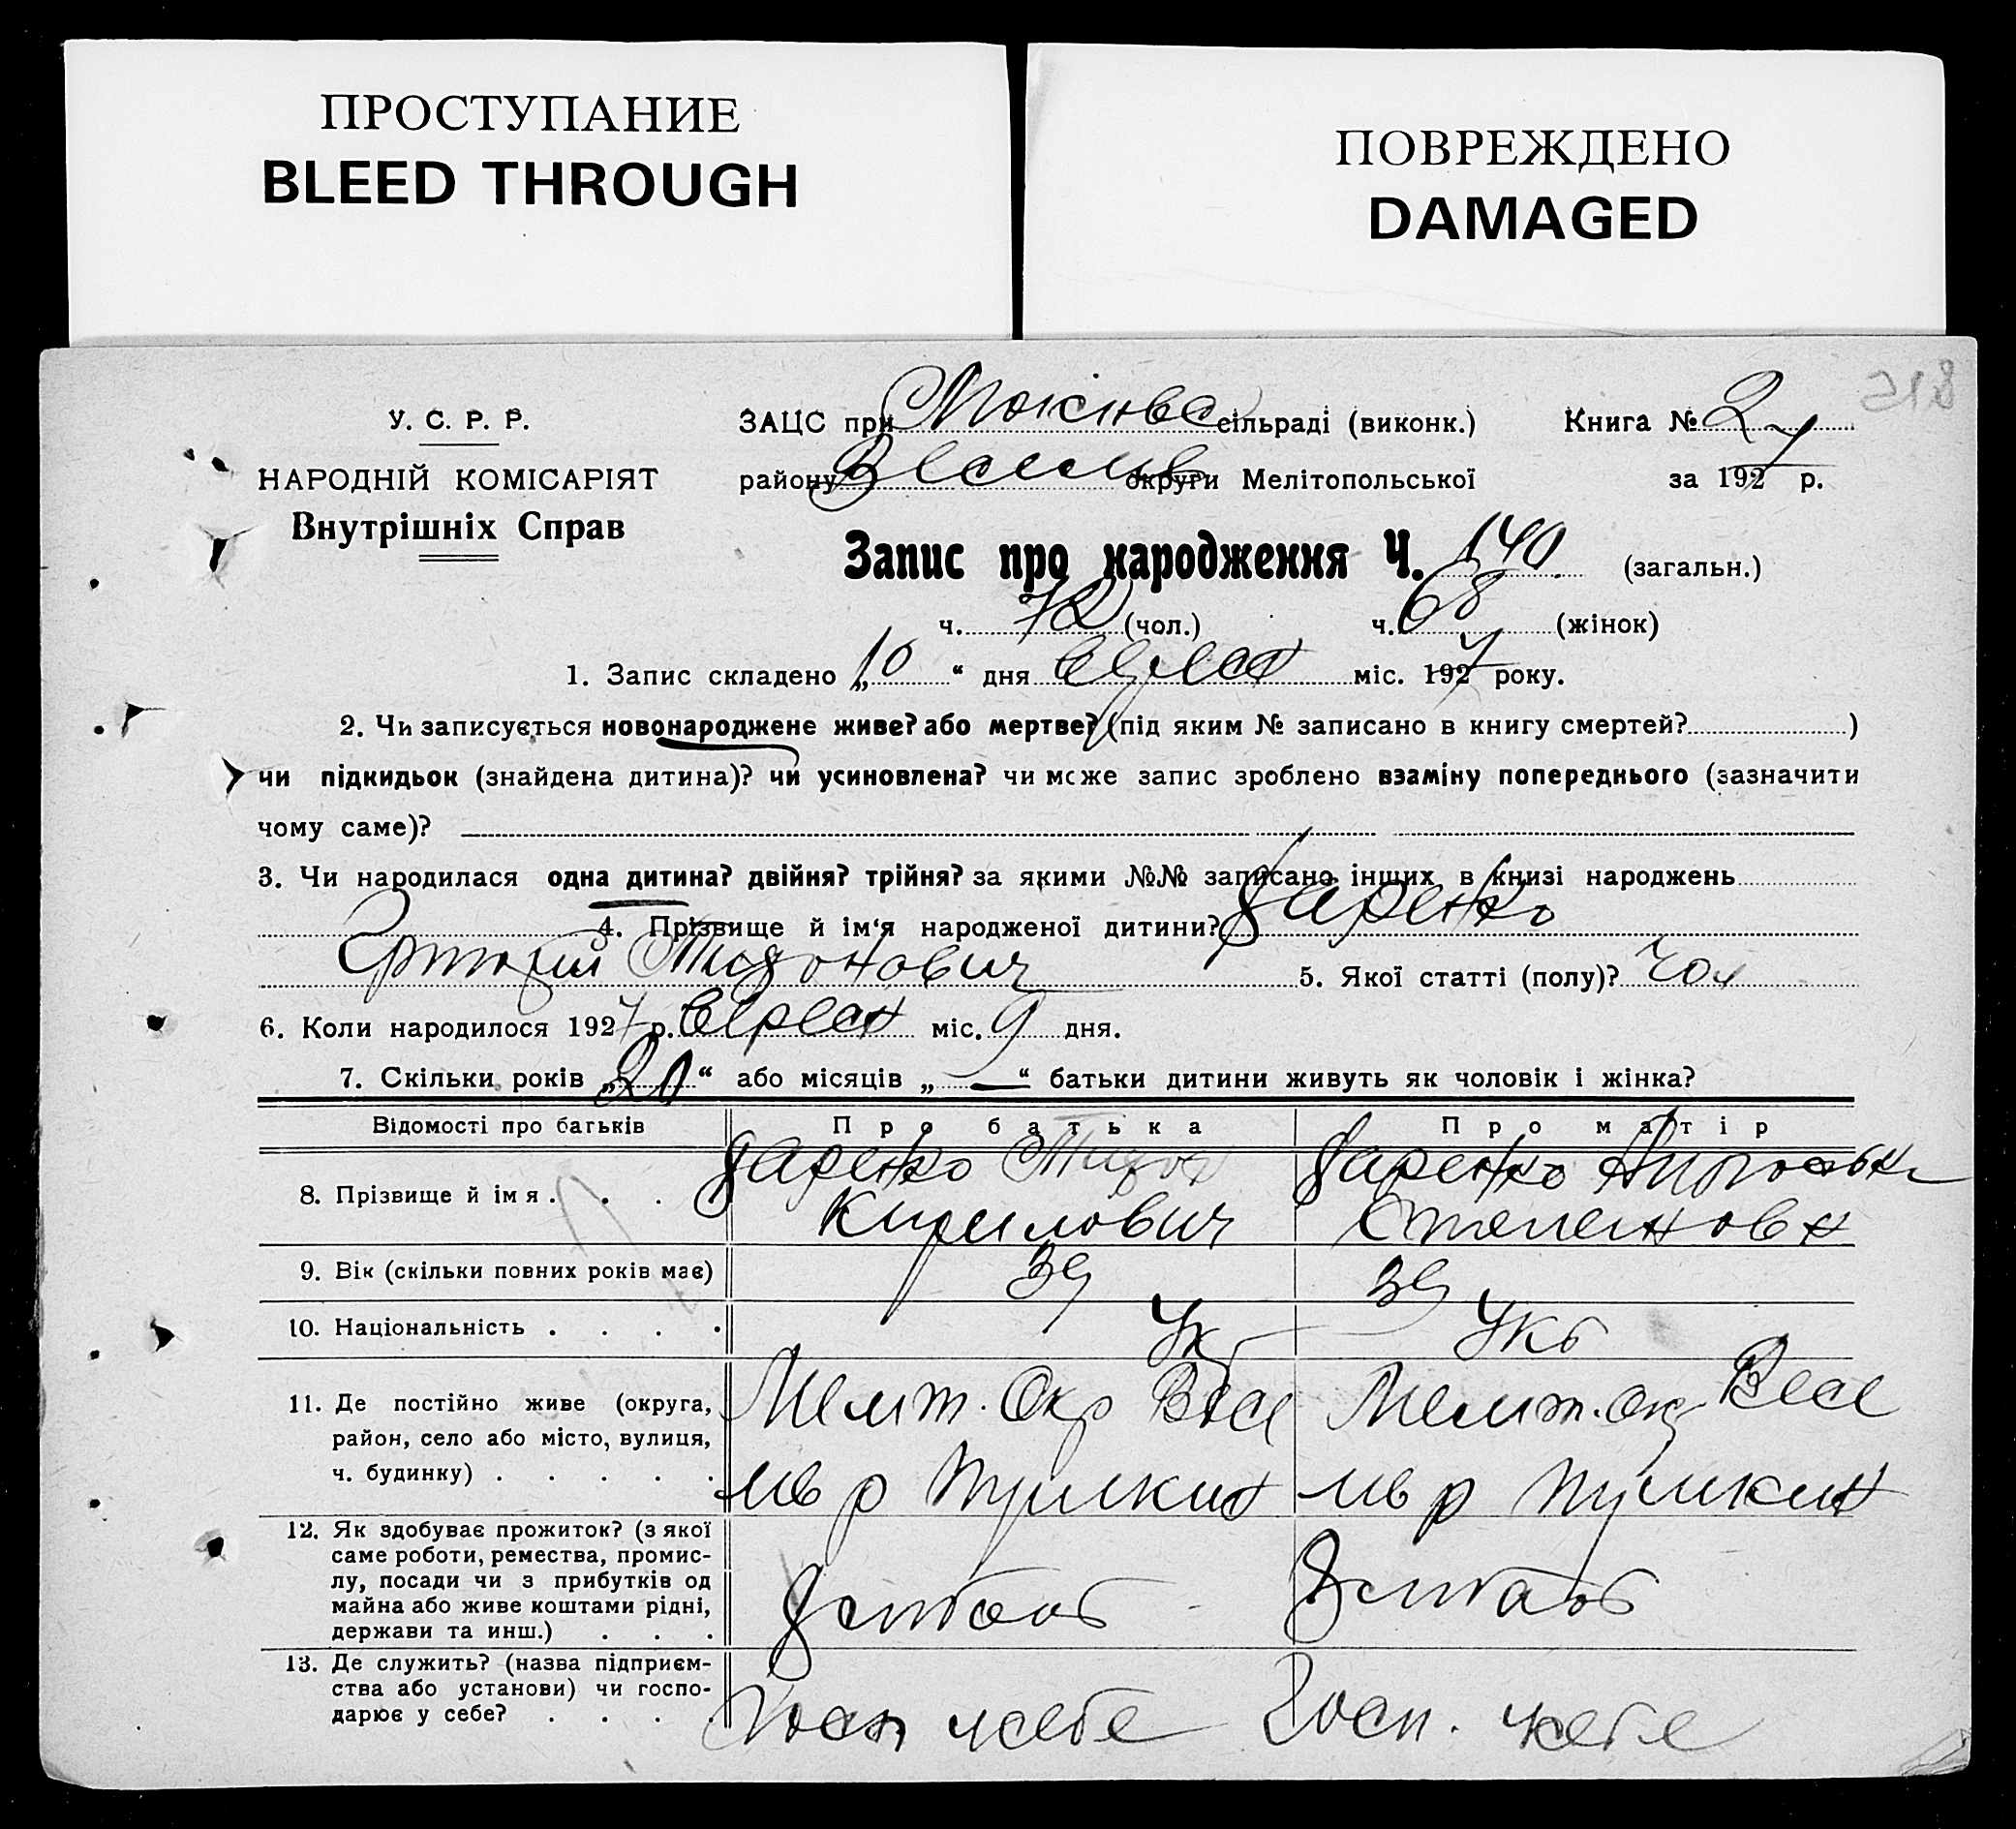 ПРОСТУПАНИЕ
BLEED THROUGH
ПОВРЕЖДЕНО
DAMAGED
318
У. С. Р. Р.
НАРОДНІЙ КОМІСАРІЯТ
Внутрішніх Справ
ЗАЦС при сільраді (виконк.)
Книга № 2
району Весел округи Мелітопольської
за 1927 р.
Запис про народження Ч. 140 (загальн.)
ч. 72 (чол.) ч. 68 (жінок)
1. Запис складено „10“ дня вересня міс. 1927 року.
2. Чи записується новонароджене живе? або мертве? (під яким № записано в книгу смертей? )
чи підкидьок (знайдена дитина)? чи усиновлена? чи може запис зроблено взаміну попереднього (зазначити
чому саме)?
3. Чи народилася одна дитина? двійня? трійня? за якими №№ записано інших в книзі народжень
4. Прізвище й ім'я народженої дитини?
Григорій 5. Якої статті (полу)? Чол
6. Коли народилося 1927 р. вересня міс. 9 дня.
7. Скільки років „20“ або місяців „—“ батьки дитини живуть як чоловік і жінка?
Відомості про батьків
Про батька
Про матір
8. Прізвище й ім я . . .
Кирилович
Степановна
9. Вік (скільки повних років має)
39
39
10. Національність . . . .
Укр
Укр
11. Де постійно живе (округа,
район, село або місто, вулиця,
ч. будинку) . . . . .
Меліт. Окр Весе
лів р
Меліт. ок Весе
лів р
12. Як здобуває прожиток? (з якої
саме роботи, ремества, промис-
лу, посади чи з прибутків од
майна або живе коштами рідні,
держави та инш.) . . .
13. Де служить? (назва підприєм-
ства або установи) чи госпо-
дарює у себе? . . . .
Госп у себе
Госп. у себе